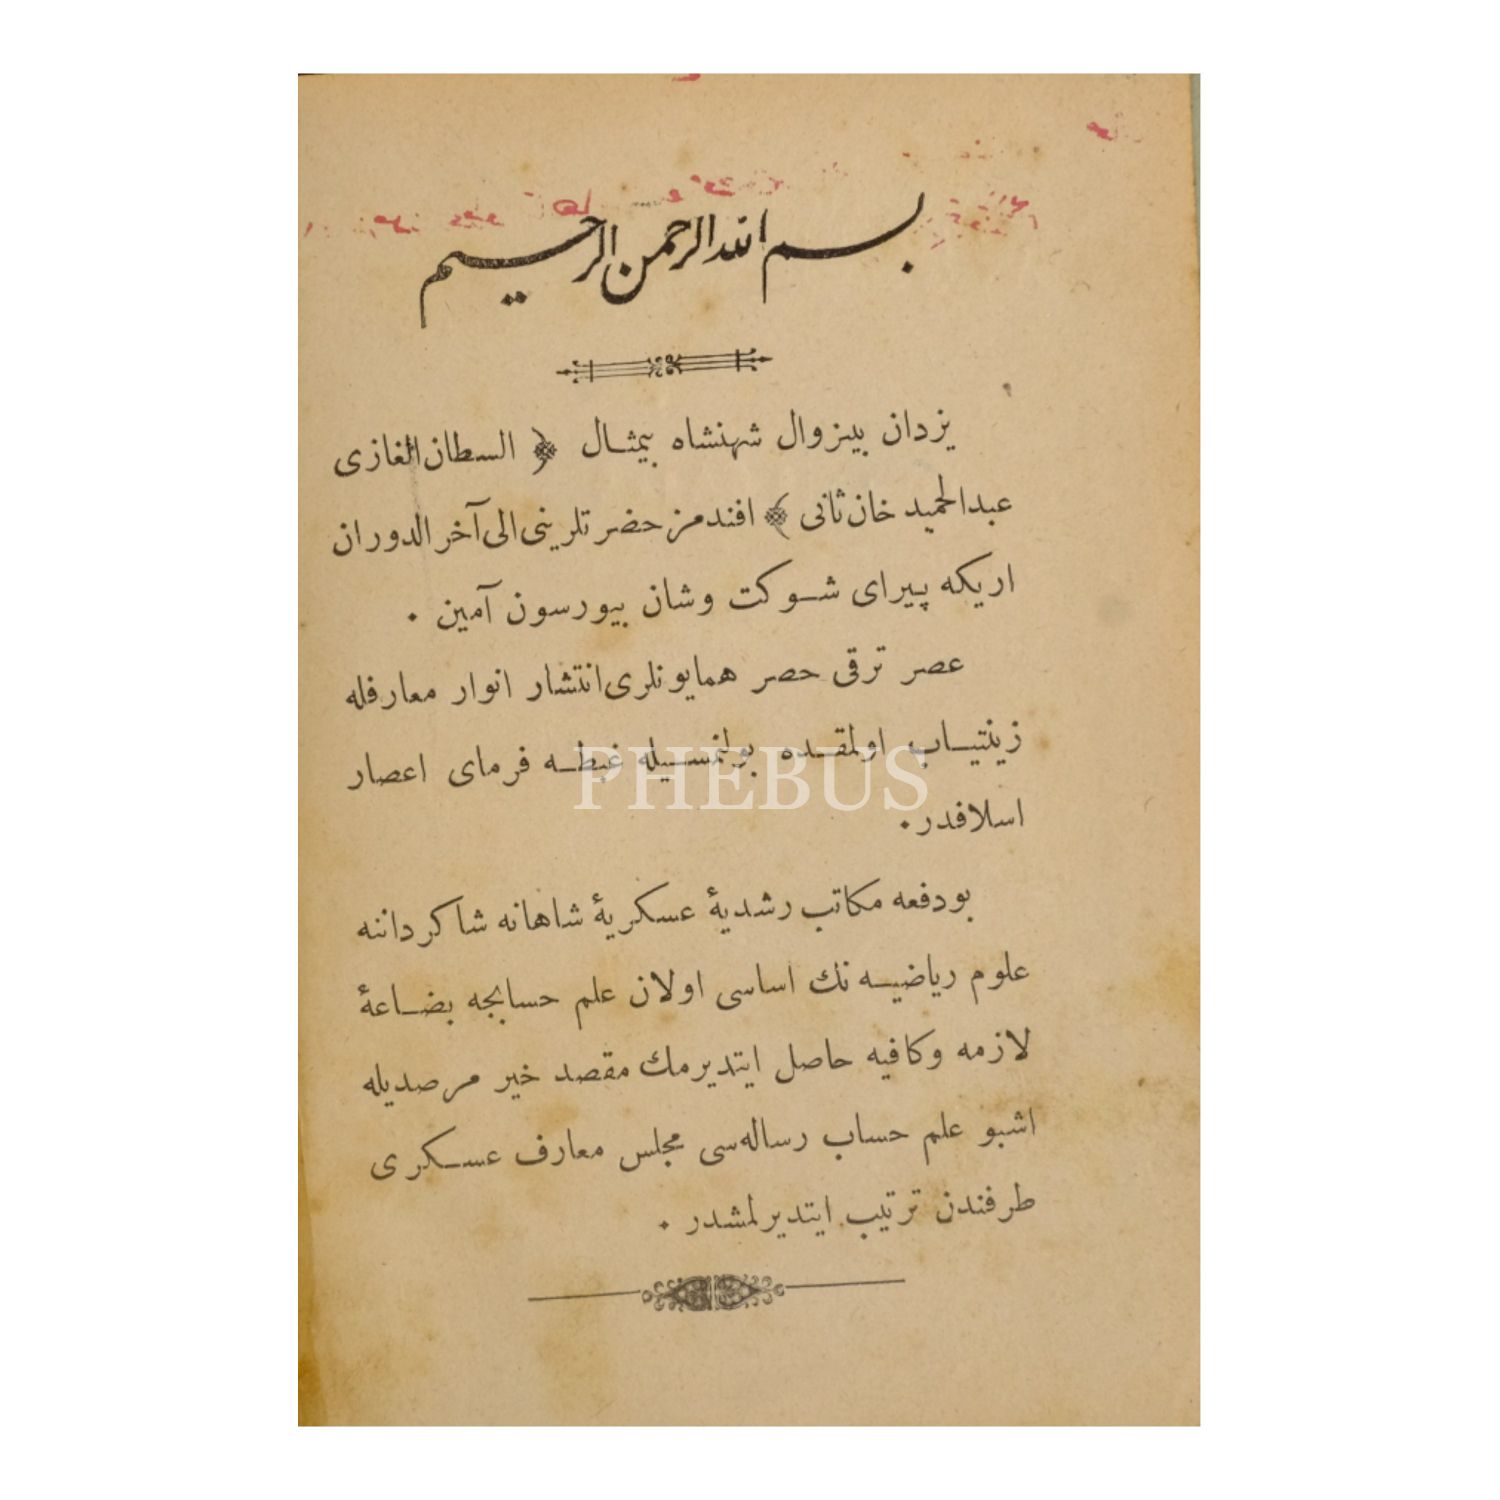 بسم الله الرحمن الرحيم
یزدان بیزوال شهنشاه بیمثال ﴿ السطان الغازی
عبدالحمید خان ثانی ﴾ افندمز حضرتلرینی الی آخر الدوران
اریکه پیرای شوکت وشان بیورسون آمین ٠
عصر ترقی حصر همایونلری انتشار انوار معارفله
زینتیاب اولمقده بولنمسیله غبطه فرمای اعصار
اسلافدر ٠
بودفعه مکاتب رشدیۀ عسکریۀ شاهانه شاکرداننه
علوم ریاضیه نك اساسی اولان علم حسابجه بضاعۀ
لازمه وکافیه حاصل ایتدیرمك مقصد خیر مرصدیله
اشبو علم حساب رساله‌سی مجلس معارف عسکری
طرفندن ترتیب ایتدیرلمشدر ٠
PHEBUS